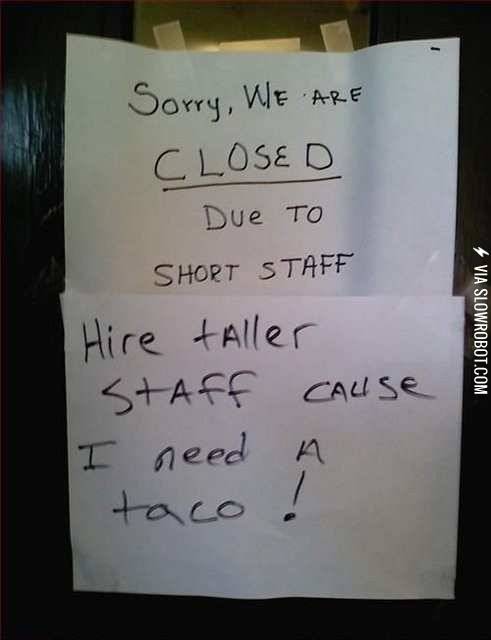 Sorry, WE ARE
CLOSED
DUE TO
SHORT STAFF
Hire tAller
STAFF CAUSE
I need A
taco!
VIA SLOWROBOT.COM